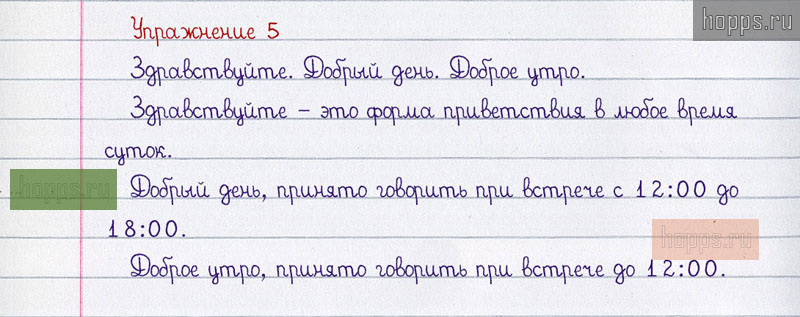 hopps.ru
Упражнение 5
Здравствуйте. Добрый день. Доброе утро.
Здравствуйте – это форма приветствия в любое время
суток.
hopps.ru
Добрый день, принято говорить при встрече с 12:00 до
18:00.
hopps.ru
Доброе утро, принято говорить при встрече до 12:00.